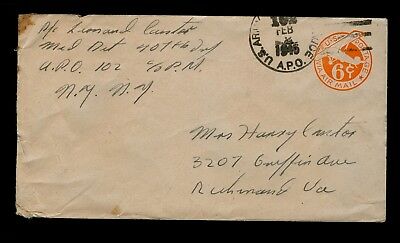 Pfc Leonard Custor
Med Det 407th Inf
A.P.O. 102 c/o P.M.
N.Y. N.Y.
U.S. ARMY
102
FEB
1945
A.P.O.
U.S. POSTAGE
6¢
VIA AIR MAIL
Mrs Henry Custor
3207 Griffin Ave
Richmond Va